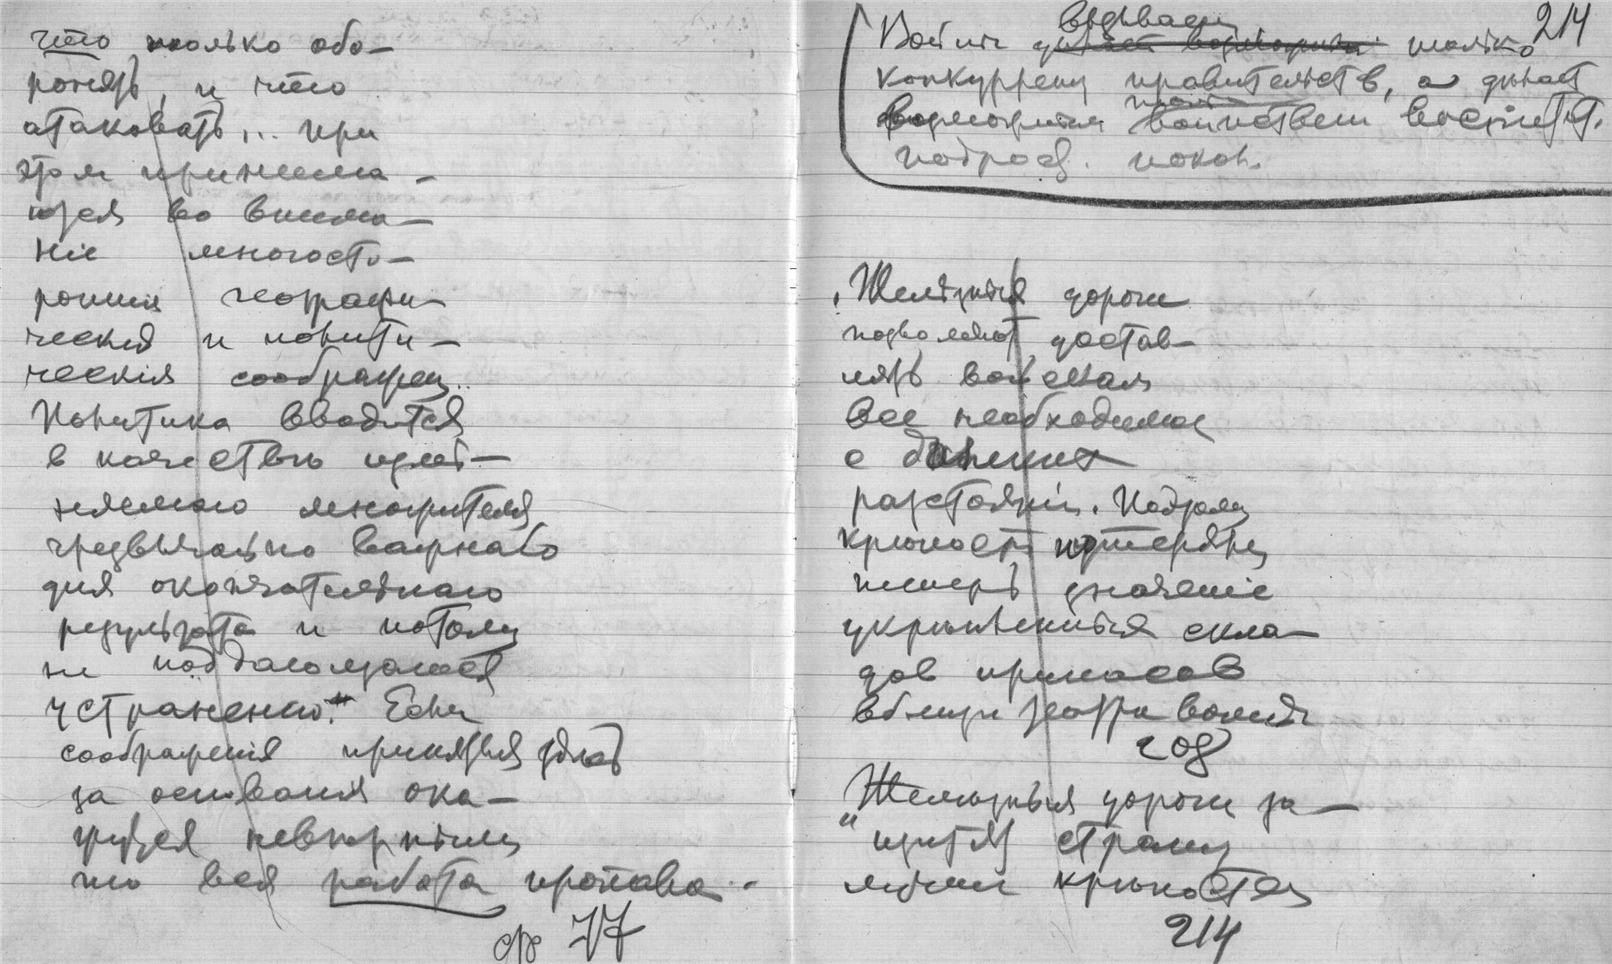 что только обо-
ронять, и что
атаковать... при
этом принима-
ются во внима-
ніе многосто-
ронния географи-
ческия и полити-
ческия соображен.
Политика вводится
в качестве
множителя
чрезвычайно важнаго
для окончательнаго
результата и потому
не
устранению." Если
соображения принятыя
за основания ока-
жутся неверными
то вся работа пропала.
стр 77
214
вызвает
Войны только
конкуренц правительств, а
Желѣзныя дороги
позволяют достав-
лять войскам
все необходимое
с дальних
разстояній. Подому
крѣпости потеряли
теперь значеніе
укрѣпленных скла-
дов припасов
вблизи театра войны
208
"Желѣзныя дороги за-
щитят страну
крѣпостей
214